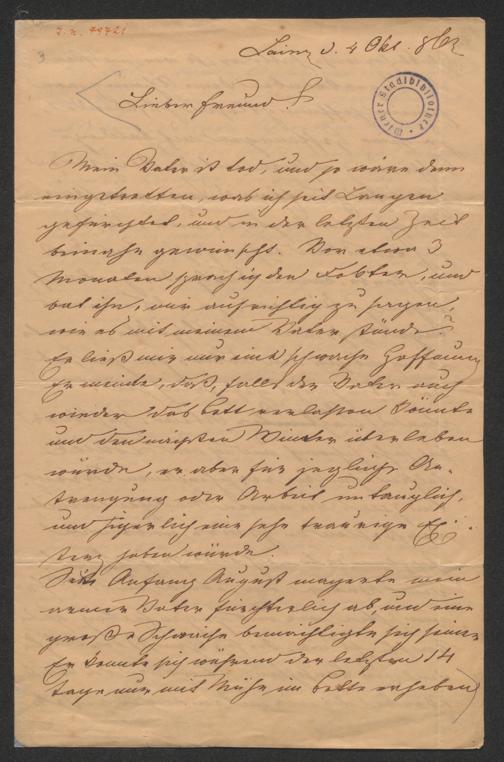 J. N. 49721
3
Lainz d. 4 Okt. 862
Wiener Stadtbibliothek
Lieber Freund!
Mein Vater ist tod, und so wäre denn
eingetretten, was ich seit Langem
gefürchtet, und in der letzten Zeit
beinahe gewünscht. Vor etwa 3
Monaten sprach ich den Doktor, und
bat ihn, mir aufrichtig zu sagen,
wie es mit meinem Vater stünde.
Er ließ mir nur eine schwache Hoffnung
Er meinte, daß, falls der Vater auch
wieder das Bett verlassen könnte
und den nächsten Winter überleben
würde, er aber für jegliche An-
strengung oder Arbeit untauglich,
und sicherlich eine sehr traurige Exi-
stenz haben würde.
Seit Anfang August magerte mein
armer Vater fürchterlich ab, und eine
große Schwäche bemächtigte sich seiner
Er konnte sich während der letzten 14
Tage nur mit Mühe im Bette erheben